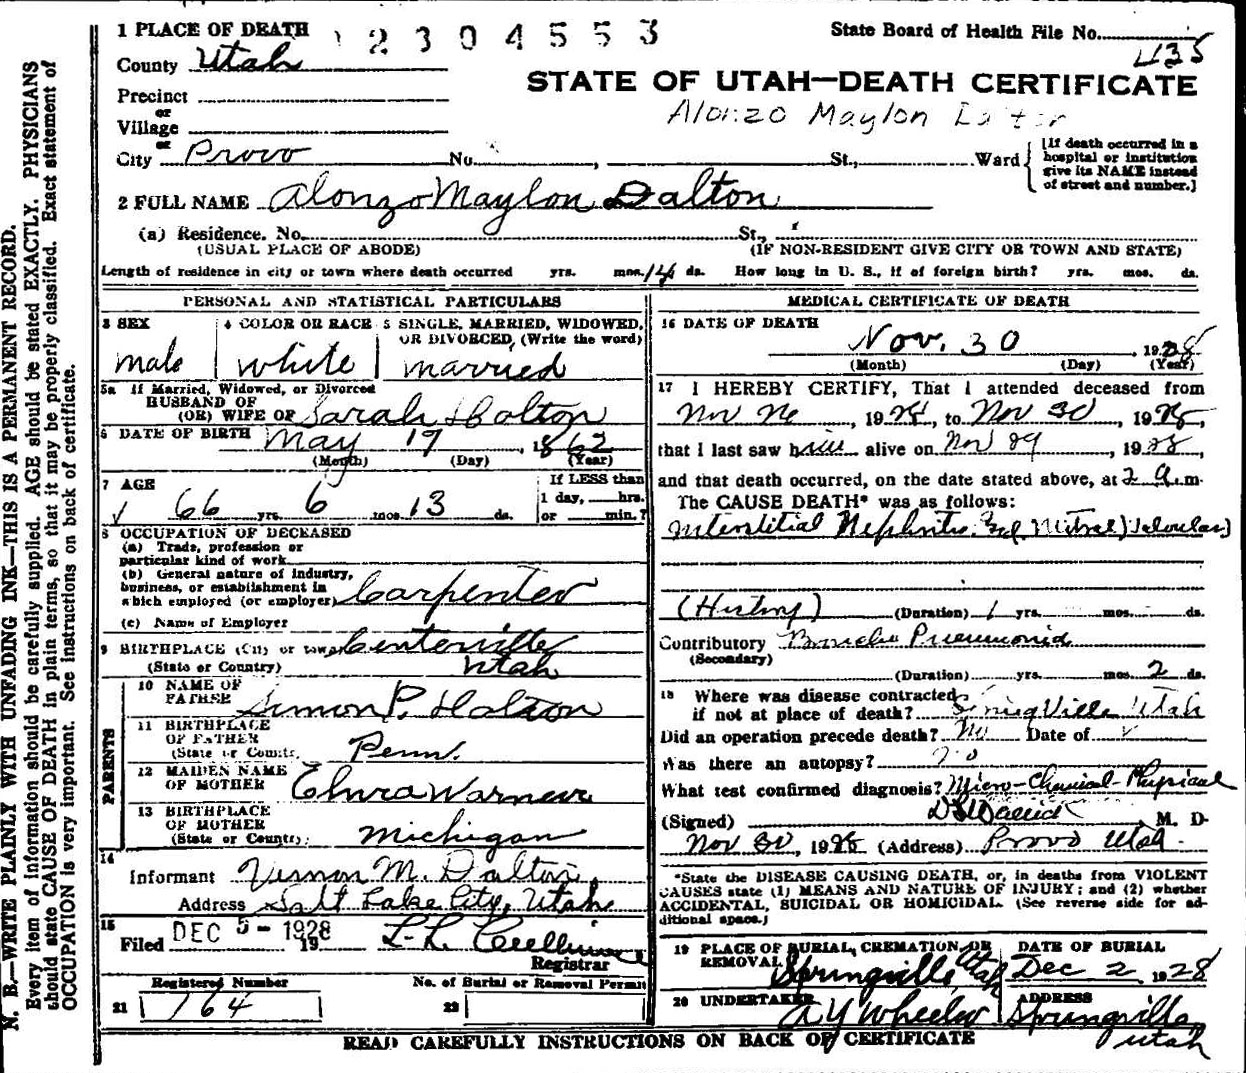 1 PLACE OF DEATH
12304553
State Board of Health File No.
435
County Utah
STATE OF UTAH—DEATH CERTIFICATE
Precinct
Alonzo Maylon
or
Village
or
City Provo No. , St., Ward
[If death occurred in a
hospital or institution
give its NAME instead
of street and number.]
2 FULL NAME Alonzo Maylon Dalton
(a) Residence. No. St.,
(USUAL PLACE OF ABODE) (IF NON-RESIDENT GIVE CITY OR TOWN AND STATE)
Length of residence in city or town where death occurred yrs. mos. 14 ds. How long in U. S., if of foreign birth? yrs. mos. ds.
PERSONAL AND STATISTICAL PARTICULARS
3 SEX
male
4 COLOR OR RACE
white
5 SINGLE, MARRIED, WIDOWED,
OR DIVORCED, (Write the word)
married
5a If Married, Widowed, or Divorced
HUSBAND OF
(OR) WIFE OF Sarah Dalton
6 DATE OF BIRTH May 17, 1862
(Month) (Day) (Year)
7 AGE
66 yrs. 6 mos. 13 ds.
If LESS than
1 day, hrs.
or min.?
8 OCCUPATION OF DECEASED
(a) Trade, profession or
particular kind of work
(b) General nature of industry,
business, or establishment in
which employed (or employer) Carpenter
(c) Name of Employer
9 BIRTHPLACE (City or town) Centerville
(State or Country) Utah
PARENTS
10 NAME OF
FATHER Simon P. Dalton
11 BIRTHPLACE
OF FATHER
(State or Country) Penn.
12 MAIDEN NAME
OF MOTHER Elnora Warner
13 BIRTHPLACE
OF MOTHER
(State or Country) Michigan
14
Informant Vernon M. Dalton,
Address Salt Lake City, Utah
15
Filed DEC 5 - 1928
19
L. L.
Registrar
Registered Number
21 164
No. of Burial or Removal Permit
22
MEDICAL CERTIFICATE OF DEATH
16 DATE OF DEATH
Nov. 30, 1928
(Month) (Day) (Year)
17 I HEREBY CERTIFY, That I attended deceased from
Nov , 1928, to Nov 30, 1928,
that I last saw him alive on Nov 29, 1928,
and that death occurred, on the date stated above, at 2 a.m.
The CAUSE DEATH* was as follows:
Interstitial Nephritis. Mitral
(History) (Duration) 1 yrs. mos. ds.
Contributory Broncho Pneumonia
(Secondary)
(Duration) yrs. mos. 2 ds.
18 Where was disease contracted
if not at place of death? Springville Utah
Did an operation precede death? No Date of
Was there an autopsy? no
What test confirmed diagnosis? Micro-Chemical-Physical
(Signed) M. D.
Nov 30, 1928 (Address) Provo Utah.
*State the DISEASE CAUSING DEATH, or, in deaths from VIOLENT
CAUSES state (1) MEANS AND NATURE OF INJURY; and (2) whether
ACCIDENTAL, SUICIDAL OR HOMICIDAL. (See reverse side for ad-
ditional space.)
19 PLACE OF BURIAL, CREMATION, OR
REMOVAL Springville, Utah
DATE OF BURIAL
Dec 2 1928
20 UNDERTAKER
A Y Wheeler
ADDRESS
Springville,
Utah
READ CAREFULLY INSTRUCTIONS ON BACK OF CERTIFICATE
N. B.—WRITE PLAINLY WITH UNFADING INK—THIS IS A PERMANENT RECORD.
Every item of information should be carefully supplied. AGE should be stated EXACTLY. PHYSICIANS
should state CAUSE OF DEATH in plain terms, so that it may be properly classified. Exact statement of
OCCUPATION is very important. See instructions on back of certificate.